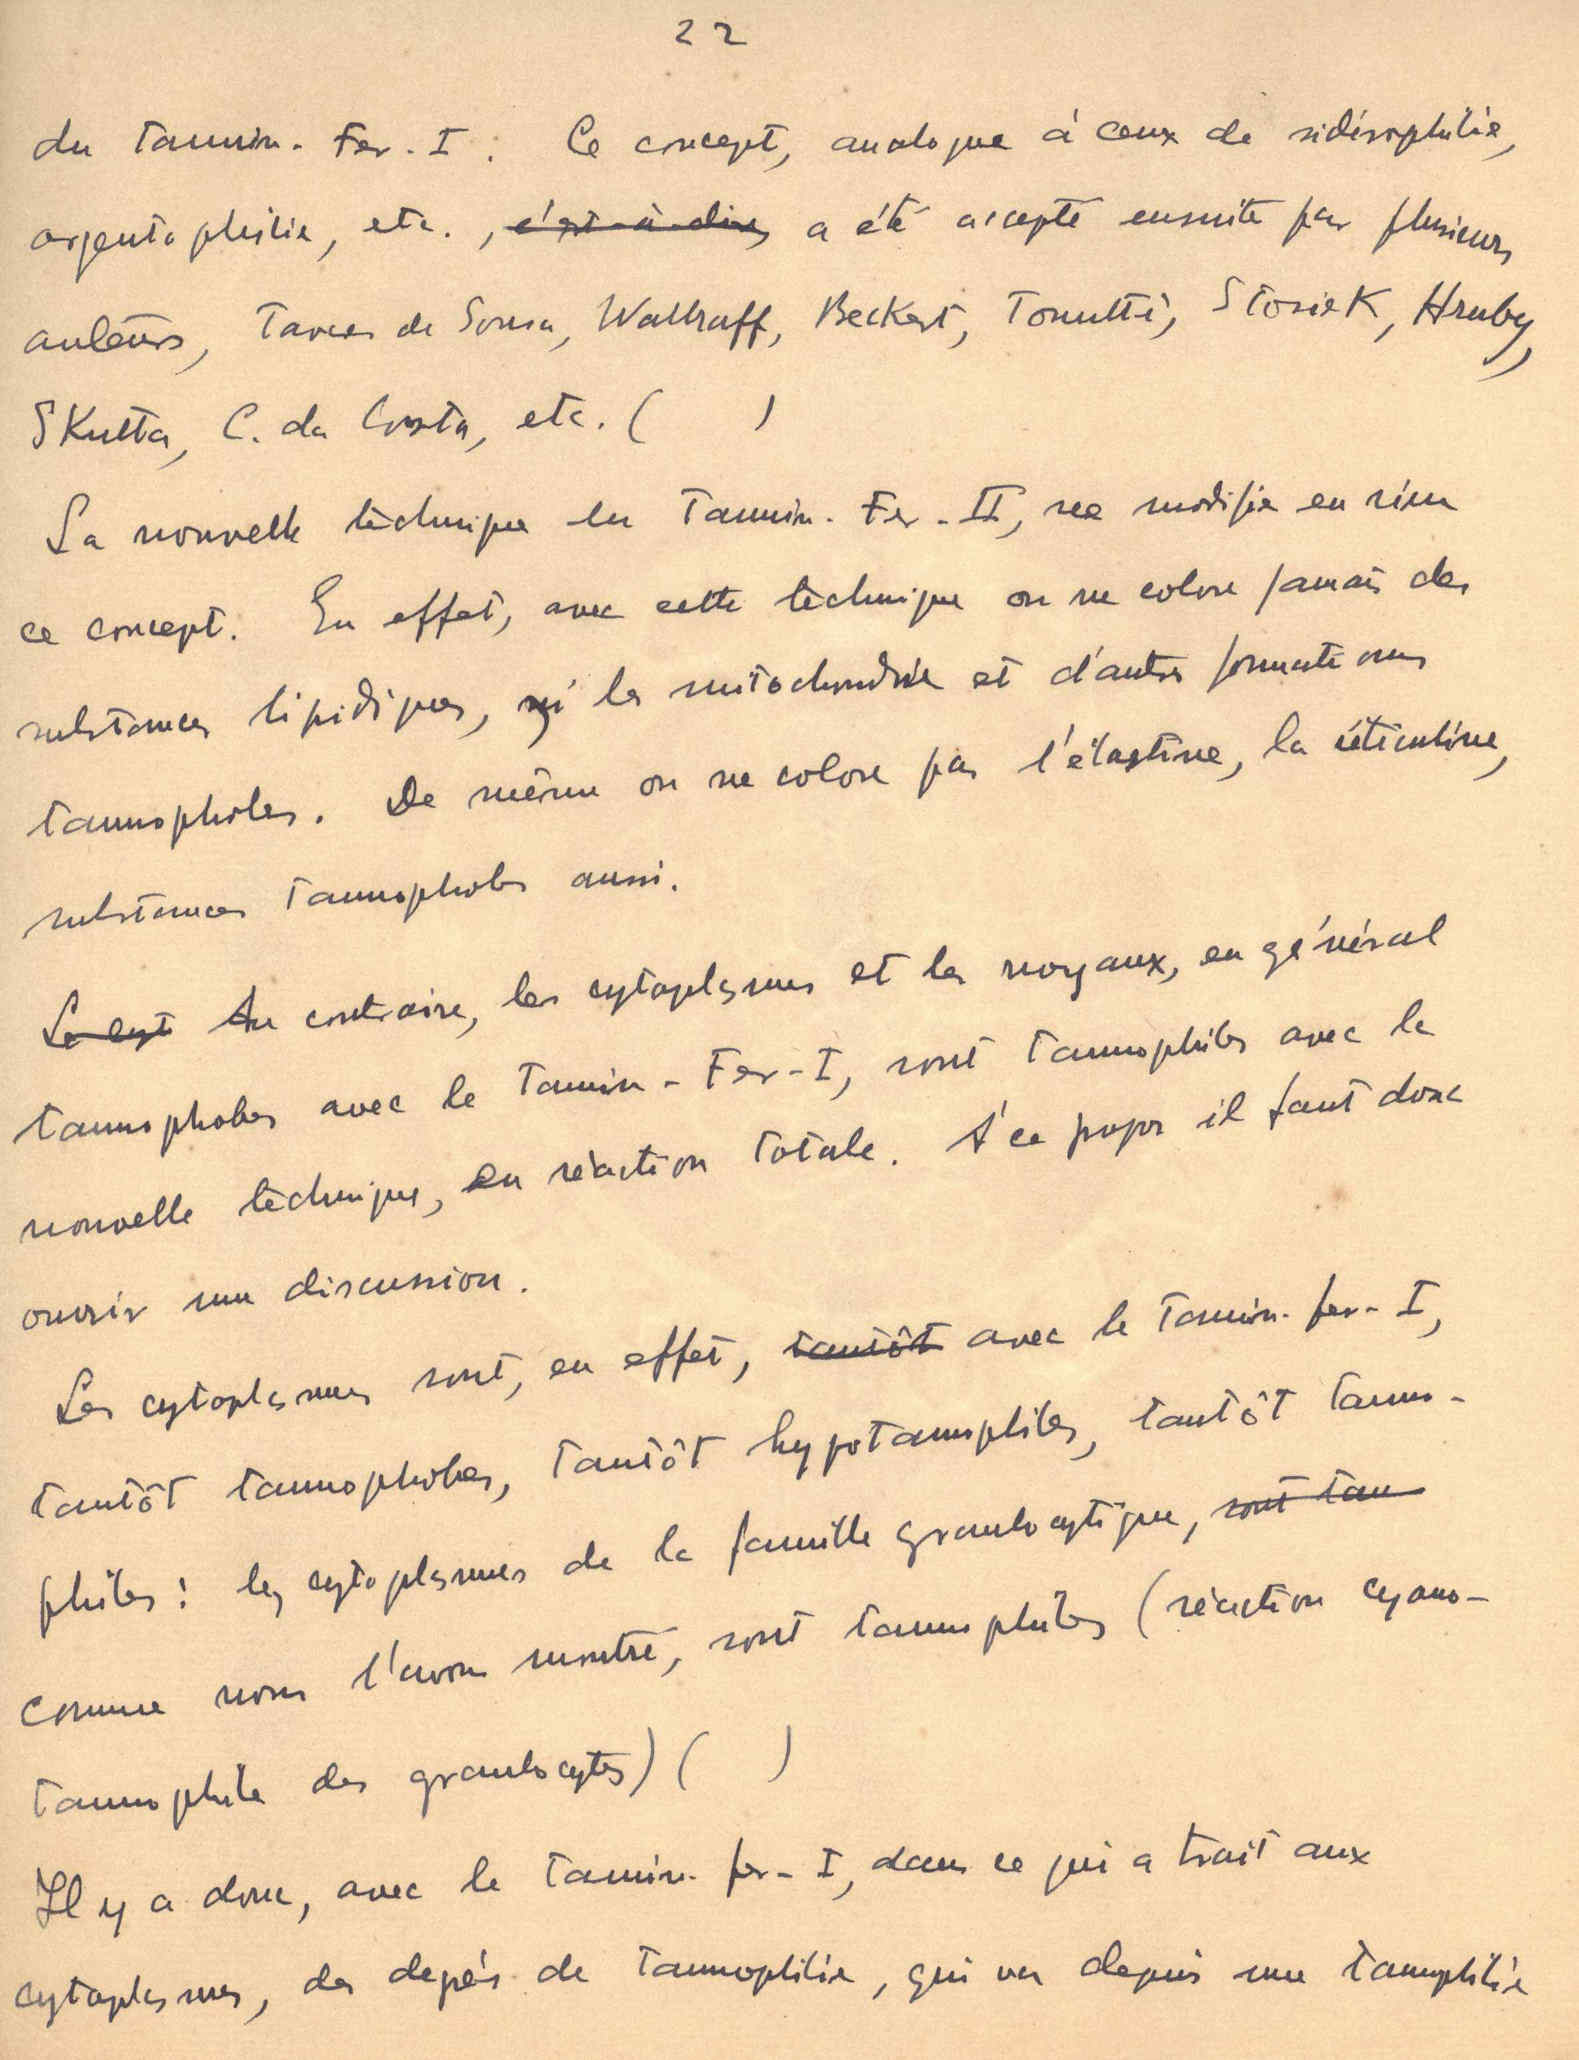 22
du Tannin-Fer-I. Ce concept, analogue à ceux de sidérophilie,
argentophilie, etc., c'est-à-dire, a été accepté ensuite par plusieurs
auteurs, Tavares de Sousa, Wallraff, Beckert, Tonutti, Stosiek, Hruby,
Skutta, C. da Costa, etc. ( )
La nouvelle tèchnique du Tannin-Fer-II, ne modifie en rien
ce concept. En effet, avec cette tèchnique on ne colore jamais des
substances lipidiques, ni les mitochondrie et d'autres formations
tannophobes. De même on ne colore pas l'élastine, la réticuline,
substances tannophobes aussi.
Le cyt Au contraire, les cytoplasmes et les noyaux, en général
tannophobes avec le Tannin-Fer-I, sont tannophiles avec la
nouvelle tèchnique, en réaction totale. A' ce propos il faut donc
ouvrir une discussion.
Les cytoplasmes sont, en effet, tantôt avec le Tannin-fer-I,
tantôt tannophobes, tantôt hypotannophiles, tantôt tanno-
philes: les cytoplasmes de la famille granulocytique, sont tan
comme nous l'avons montré, sont tannophiles (réaction cyano-
tannophile des granulocytes) ( )
Il y a donc, avec le tannin-fer-I, dans ce qui a trait aux
cytoplasmes, des degrés de tannophilie, qui va depuis une tannophilie